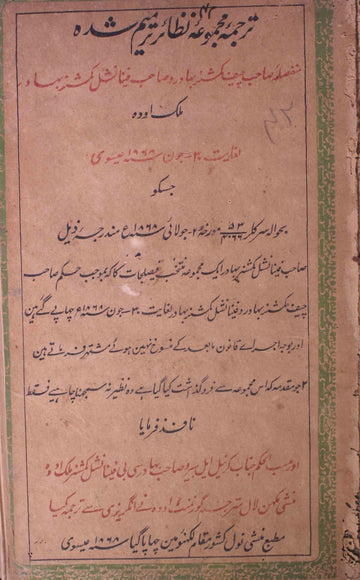 ترجمۂ مجموعۂ نظائر ترمیم شدہ
منفصلۂ صاحب چیف کمشنر بہادر و صاحب فینانشل کمشنر بہادر
ملک اودہ
لغایت ۳۰ - جون سنہ ۱۸۶۸ عیسوی
جسکو
بحوالہ سرکلر مورخہ ۲ - جولائی سنہ ۱۸۶۸ع مندرجہ ذیل
صاحب فینانشل کمشنر بہادر ایک مجموعہ منتخب فیصلجات کا کہ بموجب حکم صاحب
چیف کمشنر بہادر و فینانشل کمشنر بہادر لغایت ۳۰ - جون سنہ ۱۸۶۸ع چھاپے گئے ہین
اور بوجہ اجراے قانون مابعد کے منسوخ نہین ہوئے مشتہر فرماتے ہین
۲ جو مقدمہ کہ اس مجموعہ سے فروگذاشت کیا گیا ہے وہ نظیر نہ سمجھنا چاہیے فقط
نافذ فرمایا
اور حسب الحکم جناب کرنیل ایل بیرو صاحب بہادر سی بی فینانشل کمشنر ملک اودہ
منشی مکھن لال مترجم گورنمنٹ اودہ نے انگریزی سے ترجمہ کیا
مطبع منشی نول کشور مقام لکھنؤ مین چھاپا گیا سنہ ۱۸۶۸ عیسوی